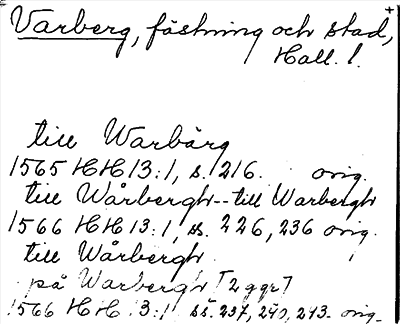 Varberg, fästning och stad,
Hall. l.
till Warbärg
1565 HH 13:1, s. 216. orig.
till Wårbergh -- till Warbergh
1566 HH 13:1, ss. 226, 236 orig.
till Wårbergh
på Warbergh [2 ggr]
1566 HH 13:1 ss. 237, 240, 243. orig.